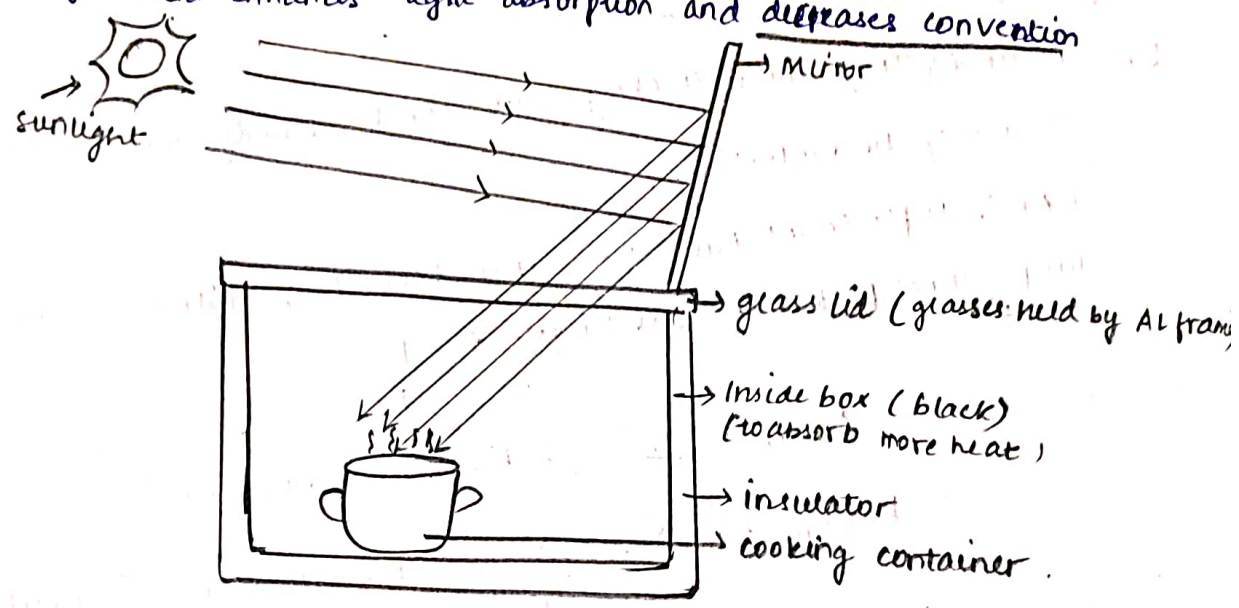 light absorption and decreases convention
sunlight
Mirror
glass lid (glasses held by Al frame)
Inside box (black)
(to absorb more heat)
insulator
cooking container.